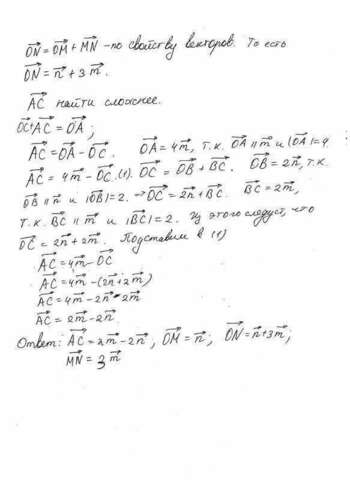 ON⃗ = OM⃗ + MN⃗ - по свойству векторов. То есть
ON⃗ = n⃗ + 3m⃗.
AC⃗ найти сложнее.
OC⃗ + AC⃗ = OA⃗;
AC⃗ = OA⃗ - OC⃗. OA⃗ = 4m⃗, т.к. OA⃗ || m⃗ и |OA⃗| = 4
AC⃗ = 4m⃗ - OC⃗. (1). OC⃗ = OB⃗ + BC⃗. OB⃗ = 2n⃗, т.к.
OB⃗ || n⃗ и |OB⃗| = 2. → OC⃗ = 2n⃗ + BC⃗. BC⃗ = 2m⃗,
т.к. BC⃗ || m⃗ и |BC⃗| = 2. Из этого следует, что
OC⃗ = 2n⃗ + 2m⃗. Подставим в (1)
AC⃗ = 4m⃗ - OC⃗
AC⃗ = 4m⃗ - (2n⃗ + 2m⃗)
AC⃗ = 4m⃗ - 2n⃗ - 2m⃗
AC⃗ = 2m⃗ - 2n⃗
Ответ: AC⃗ = 2m⃗ - 2n⃗, OM⃗ = n⃗, ON⃗ = n⃗ + 3m⃗;
MN⃗ = 3m⃗